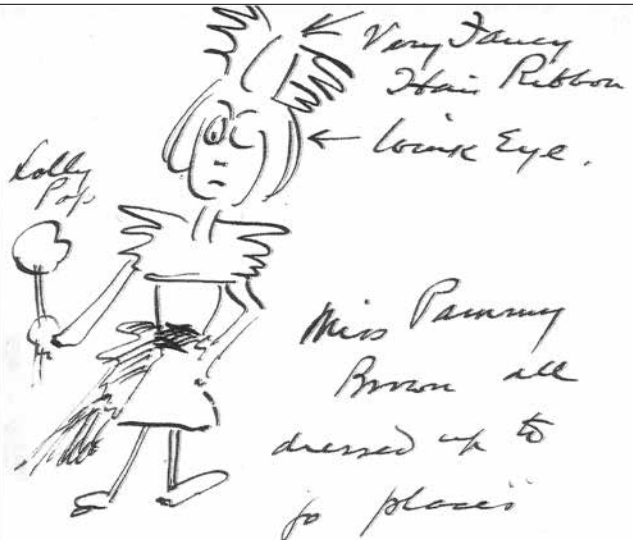 Very Fancy
Hair Ribbon
Wink Eye.
Lolly
Pop
Miss Pammy
Brown all
dressed up to
go places